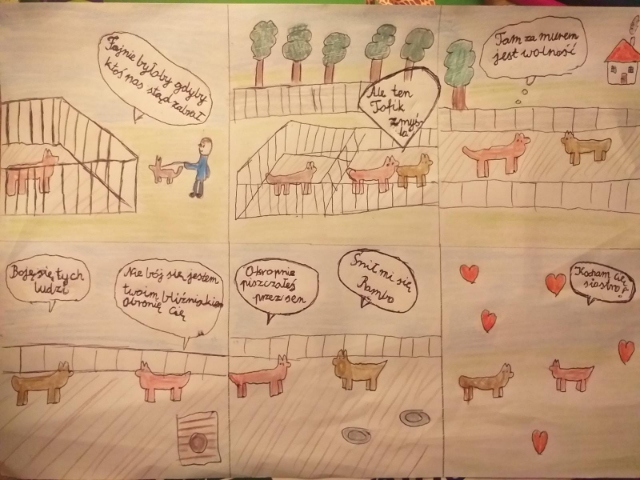 Fajnie byłoby gdyby
ktoś nas stąd zabrał
Ale ten
Tofik
zmyś
la
Tam za murem
jest wolność
Boję się tych
ludzi
Nie bój się jestem
twoim bliźniakiem
obronię Cię
Okropnie
piszczałeś
przez sen
Śnił mi się
Rambo
Kocham Cię
siostro